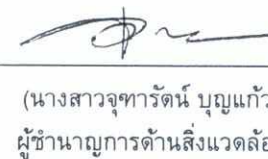 (นางสาวจุฑารัตน์ บุญแก้ว
ผู้ชำนาญการด้านสิ่งแวดล้อ